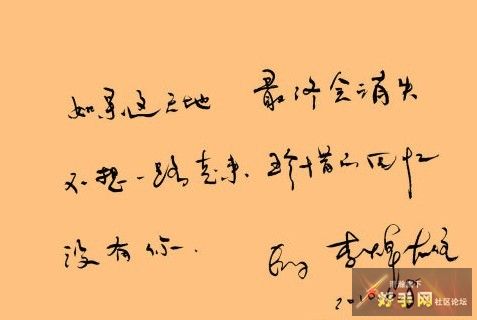 如果这天地 最终会消失
不想一路走来 珍惜的回忆
没有你.
李焯雄
好手网 社区论坛